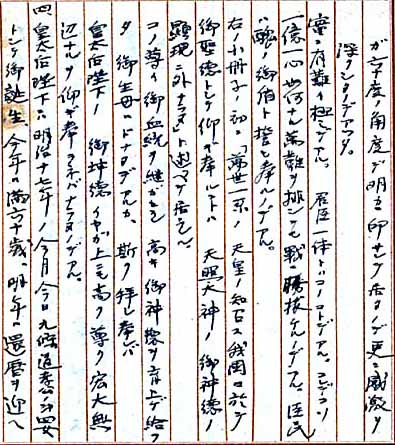 ガ六十度ノ角度デ明カニ印サレテ居ルノデ更ニ感激ヲ
深クシタノデアツタ。
實ニ有難キ極ミデアル。君臣一体トハコノコトデアル。コレデコソ
一億一心、如何ナル萬難ヲ排シテモ戰ニ勝抜ケルノデアル。臣民
ハ醜ノ御盾ト誓ヒ奉ルノデアル。
右ノ小冊子ノ初ニ「萬世一系ノ天皇ノ知召ス我國ニ於テ
御聖徳トシテ仰ギ奉ルハ 天照大神ノ御神徳ノ
顕現ニ外ナラヌ」ト述ベテ居ル。
コノ尊キ御血統ヲ継ガレ 高キ御神徳ヲ育上ゲ給フ
タ御生母ハドナタデアルカ、斯ク拝シ奉レバ
皇太后陛下ノ御坤徳イヤガ上ニモ高ク尊ク宏大無
辺ナルヲ仰ギ奉ラネバナラヌノデアル。
四 皇太后陛下ハ明治十七年ノ今月今日九條道孝公ノ四女
トシテ御誕生、今年ハ満六十歳、明年ハ還暦ヲ迎ヘ